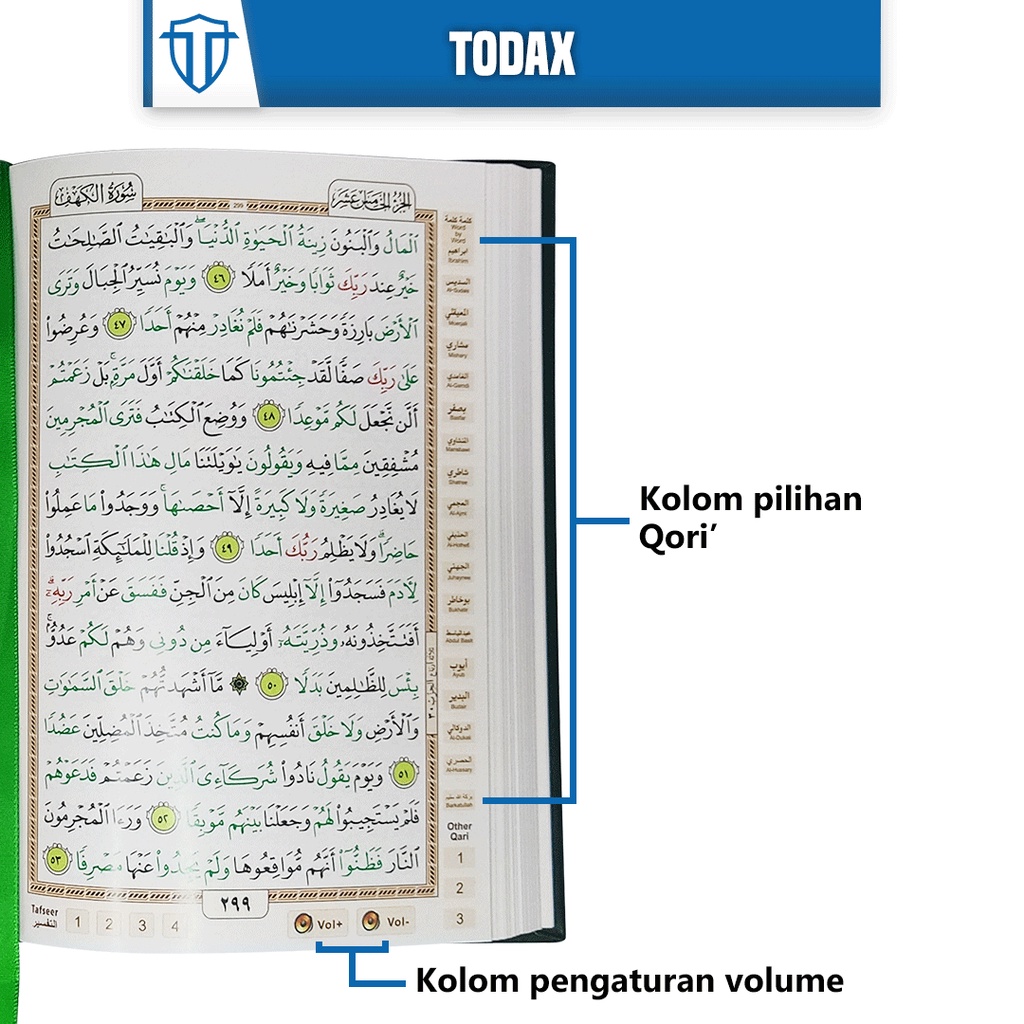 TODAX
سُورَةُ الكَهْفِ
299
الجُزْءُ الخَامِسَ عَشَرَ
ٱلْمَالُ وَٱلْبَنُونَ زِينَةُ ٱلْحَيَوٰةِ ٱلدُّنْيَا ۖ وَٱلْبَٰقِيَٰتُ ٱلصَّٰلِحَٰتُ
خَيْرٌ عِندَ رَبِّكَ ثَوَابًا وَخَيْرٌ أَمَلًا ٤٦ وَيَوْمَ نُسَيِّرُ ٱلْجِبَالَ وَتَرَى
ٱلْأَرْضَ بَارِزَةً وَحَشَرْنَٰهُمْ فَلَمْ نُغَادِرْ مِنْهُمْ أَحَدًا ٤٧ وَعُرِضُوا۟
عَلَىٰ رَبِّكَ صَفًّا لَّقَدْ جِئْتُمُونَا كَمَا خَلَقْنَٰكُمْ أَوَّلَ مَرَّةٍۭ ۚ بَلْ زَعَمْتُمْ
أَلَّن نَّجْعَلَ لَكُم مَّوْعِدًا ٤٨ وَوُضِعَ ٱلْكِتَٰبُ فَتَرَى ٱلْمُجْرِمِينَ
مُشْفِقِينَ مِمَّا فِيهِ وَيَقُولُونَ يَٰوَيْلَتَنَا مَالِ هَٰذَا ٱلْكِتَٰبِ
لَا يُغَادِرُ صَغِيرَةً وَلَا كَبِيرَةً إِلَّآ أَحْصَىٰهَا ۚ وَوَجَدُوا۟ مَا عَمِلُوا۟
حَاضِرًا ۗ وَلَا يَظْلِمُ رَبُّكَ أَحَدًا ٤٩ وَإِذْ قُلْنَا لِلْمَلَٰٓئِكَةِ ٱسْجُدُوا۟
لِءَادَمَ فَسَجَدُوٓا۟ إِلَّآ إِبْلِيسَ كَانَ مِنَ ٱلْجِنِّ فَفَسَقَ عَنْ أَمْرِ رَبِّهِۦٓ ۗ
أَفَتَتَّخِذُونَهُۥ وَذُرِّيَّتَهُۥٓ أَوْلِيَآءَ مِن دُونِى وَهُمْ لَكُمْ عَدُوٌّۢ ۚ
بِئْسَ لِلظَّٰلِمِينَ بَدَلًا ٥٠ ۞ مَّآ أَشْهَدتُّهُمْ خَلْقَ ٱلسَّمَٰوَٰتِ
وَٱلْأَرْضِ وَلَا خَلْقَ أَنفُسِهِمْ وَمَا كُنتُ مُتَّخِذَ ٱلْمُضِلِّينَ عَضُدًا
٥١ وَيَوْمَ يَقُولُ نَادُوا۟ شُرَكَآءِىَ ٱلَّذِينَ زَعَمْتُمْ فَدَعَوْهُمْ
فَلَمْ يَسْتَجِيبُوا۟ لَهُمْ وَجَعَلْنَا بَيْنَهُم مَّوْبِقًا ٥٢ وَرَءَا ٱلْمُجْرِمُونَ
ٱلنَّارَ فَظَنُّوٓا۟ أَنَّهُم مُّوَاقِعُوهَا وَلَمْ يَجِدُوا۟ عَنْهَا مَصْرِفًا ٥٣
٢٩٩
كلمة كلمة
Word
by
Word
ابراهيم
Ibrahim
السديس
Al-Sudais
المعيقلي
Mueqali
مشاري
Mishary
الغامدي
Al-Gamdi
بصفر
Basfar
المنشاوي
Manshawi
شاطري
Shatree
العجمي
Al-Ajmi
الحذيفي
Al-Hothefi
الجهني
Juhaynee
بوخاطر
Bukhatir
عبدالباسط
Abdul Basit
أيوب
Ayub
البدير
Budair
الدوكالي
Al-Dukali
الحصري
Al-Hussary
بركة الله سليم
Barkatullah
Other
Qari
1
2
3
Tafseer
التفسير
1 2 3 4
Vol+
Vol-
Kolom pilihan
Qori’
Kolom pengaturan volume